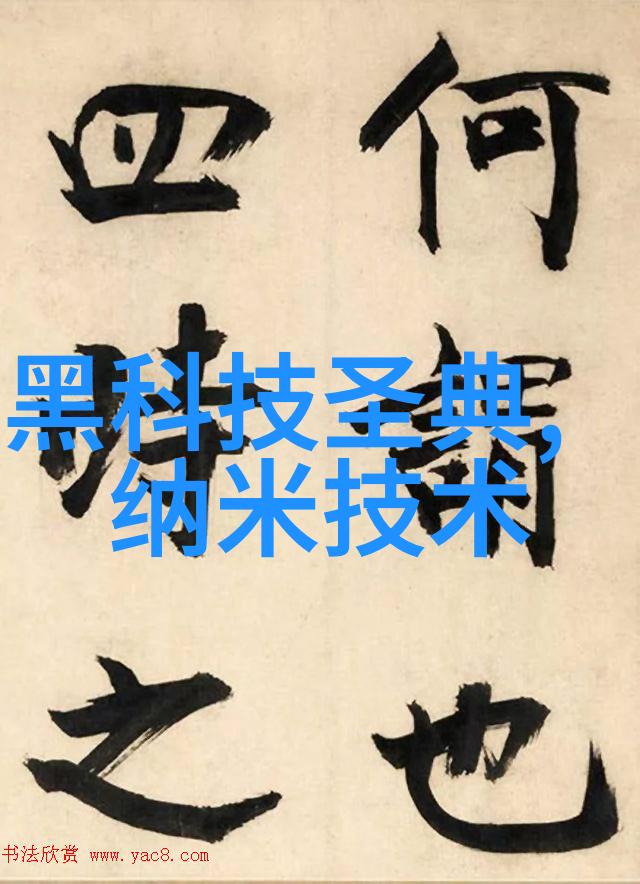 何謂也
四時之
黑科技圣典,
纳米技术
书法欣赏 www.yac8.com